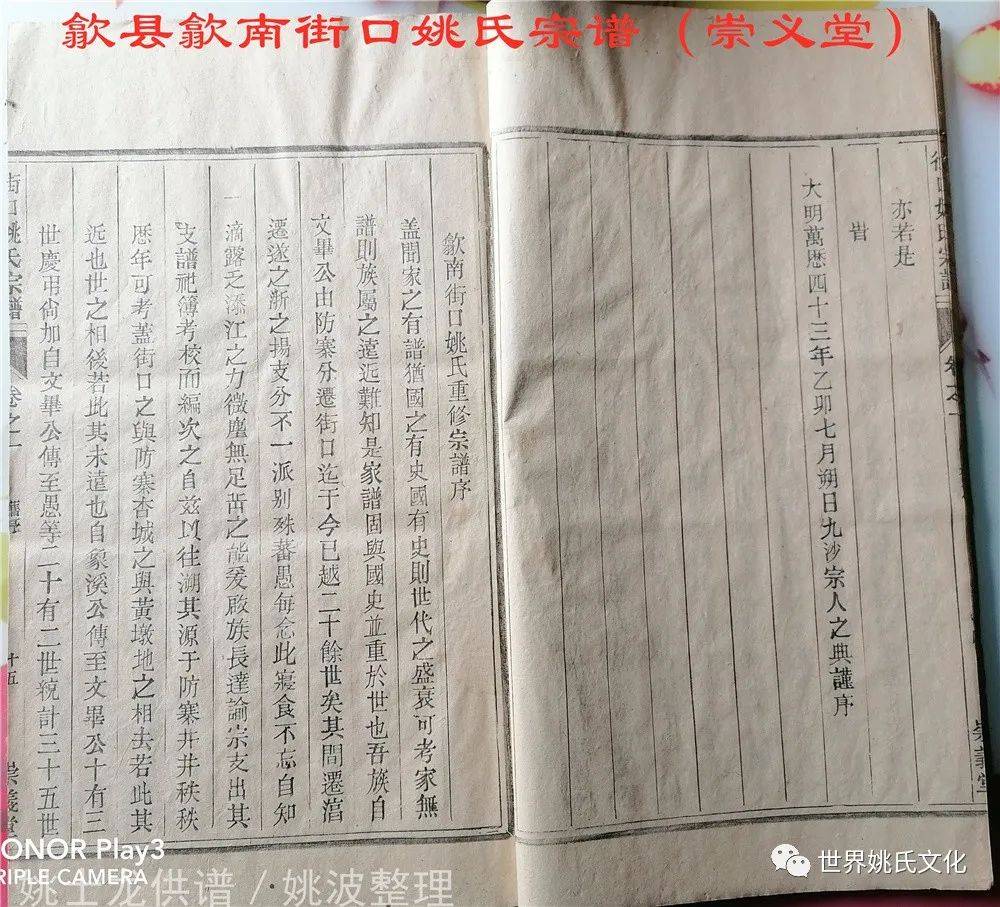 歙县歙南街口姚氏宗谱（崇义堂）
亦若是
旹
大明萬厯四十三年乙卯七月朔日九沙宗人之典謹序
崇義堂
歙南街口姚氏重修宗譜序
盖聞家之有譜猶國之有史國有史則世代之盛衰可考家無
譜則族屬之遠近難知是家譜固與國史並重於世也吾族自
文畢公由防寨分遷街口迄于今已越二十餘世矣其間遷
遷遂之浙之揚支分不一派別殊蕃愚每念此寢食不忘自知
一滴露乏添江之力微塵無足岳之能爰啟族長達諭宗支出其
支譜祀簿考校而編次之自兹以徃溯其源于防寨井井秩秩
厯年可考蓋街口之與防寨杏城之與黃墩地之相去若此其
近也世之相後若此其未遠也自象溪公傳至文畢公十有三
世慶弔尙加自文畢公傳至愚等二十有二世統計三十五世
街口姚氏宗譜
卷之一
十五
崇義堂
HONOR Play3
TRIPLE CAMERA
姚士龙供谱/姚波整理
世界姚氏文化